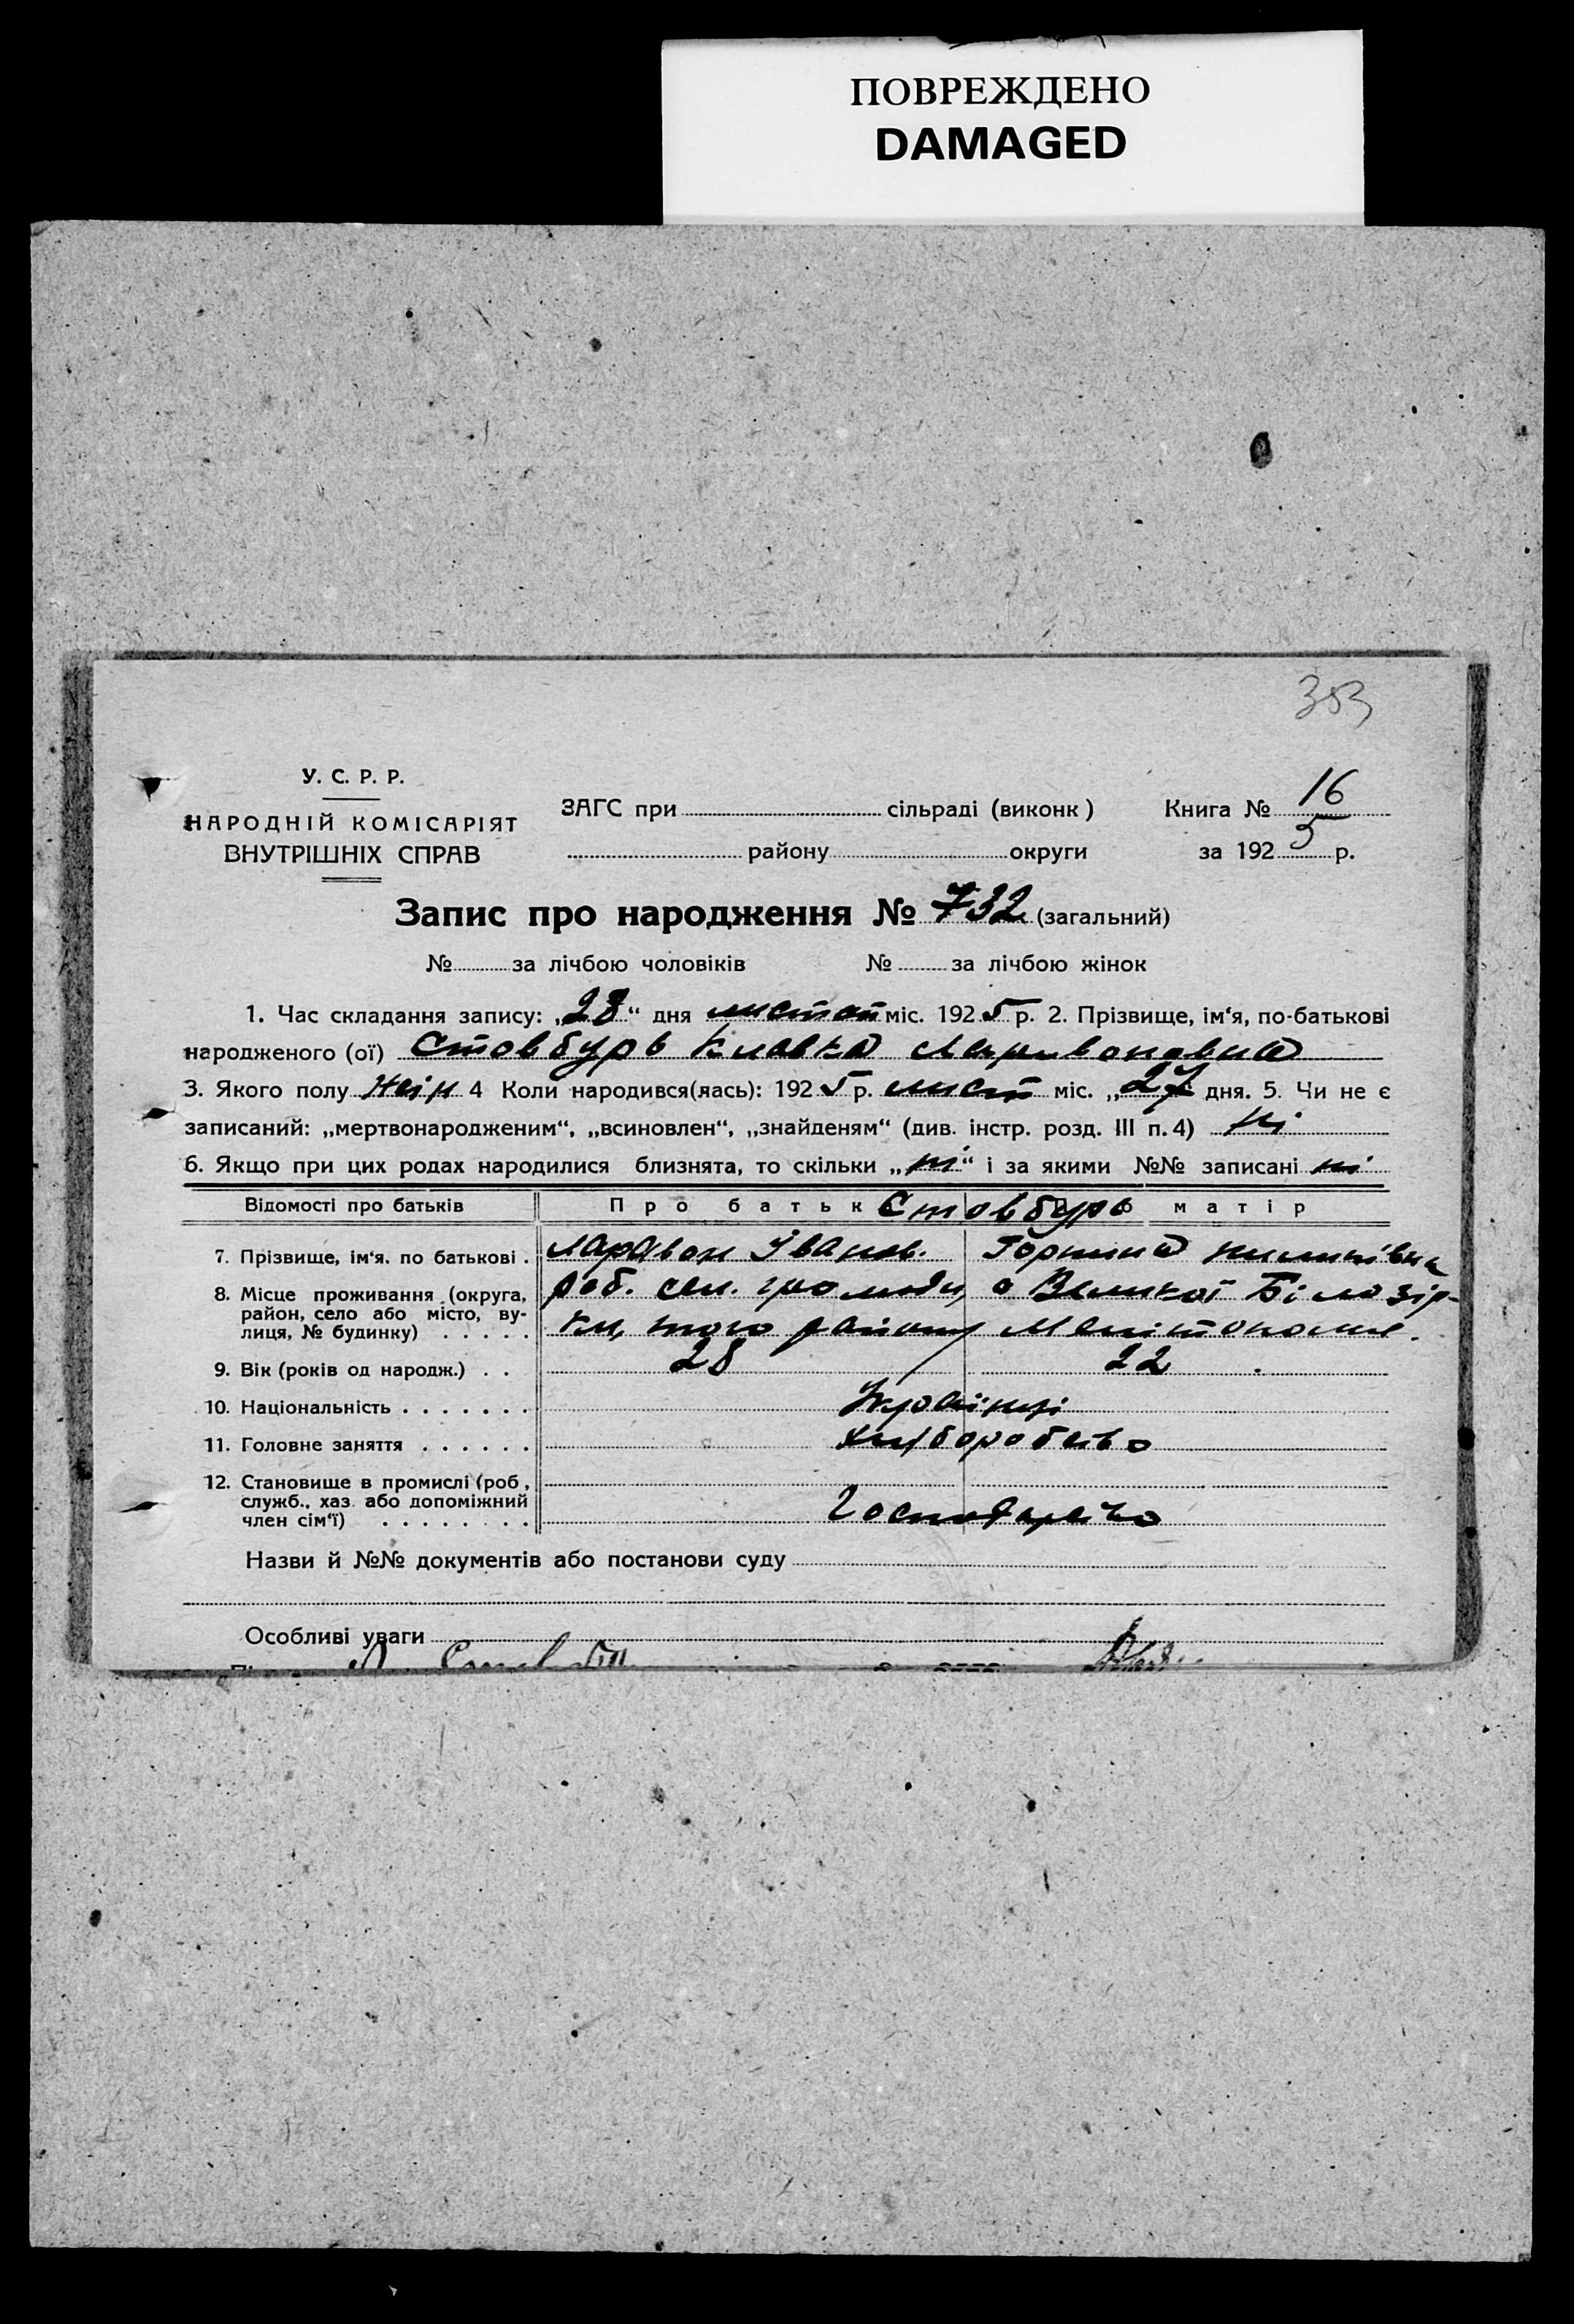 ПОВРЕЖДЕНО
DAMAGED
353
У. С. Р. Р.
НАРОДНІЙ КОМІСАРІЯТ
ВНУТРІШНІХ СПРАВ
ЗАГС при сільраді (виконк)
району округи
Книга № 16
за 1925 р.
Запис про народження № 732 (загальний)
№ за лічбою чоловіків № за лічбою жінок
1. Час складання запису: „28“ дня листоп міс. 1925 р. 2. Прізвище, ім‘я, по-батькові
народженого (ої) Стовбурь Клавка
3. Якого полу жін 4 Коли народився(лась): 1925 р. лист міс. „27 дня. 5. Чи не є
записаний: „мертвонародженим“, „всиновлен“, „знайденям“ (див. інстр. розд. III п. 4) ні
6. Якщо при цих родах народилися близнята, то скільки „ні“ і за якими №№ записані ні
Відомості про батьків Про батьк Стовбурь матір
7. Прізвище, ім‘я. по батькові . Ларивон Іванов. Горпина
8. Місце проживання (округа, сел. громади, с Великої Білозір-
район, село або місто, ву-
лиця, № будинку) . . . . . ки, того району Мелітопольк.
9. Вік (років од народж.) . . 28 22
10. Національність . . . . . . . Українці
11. Головне заняття . . . . . . хліборобство
12. Становище в промислі (роб,
служб., хаз. або допоміжний
член сім‘ї) . . . . . . . . Господарство
Назви й №№ документів або постанови суду
Особливі уваги